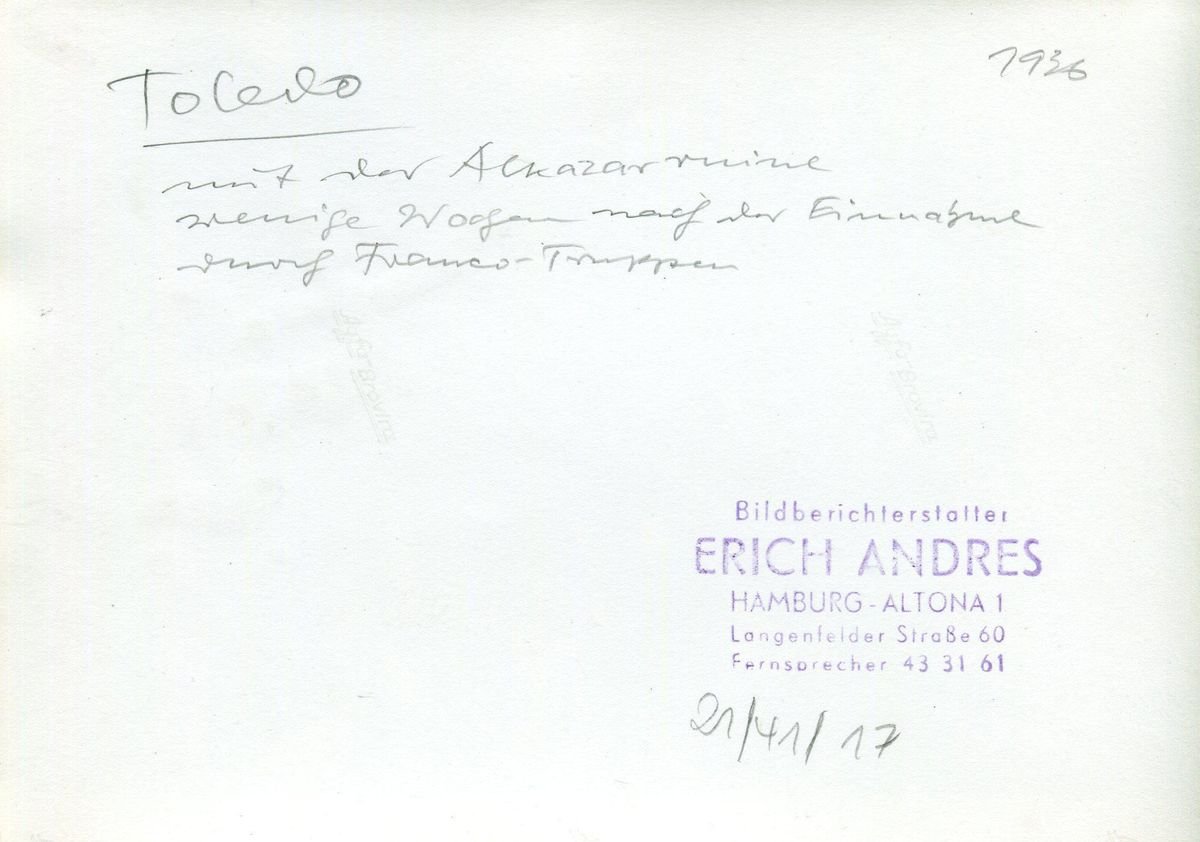 1936
Toledo
mit der Alkazarruine
wenige Wochen nach der Einnahme
durch Franco-Truppen
Agfa-Brovira
Agfa-Brovira
Bildberichterstatter
ERICH ANDRES
HAMBURG-ALTONA 1
Langenfelder Straße 60
Fernsprecher 43 31 61
21/41/17